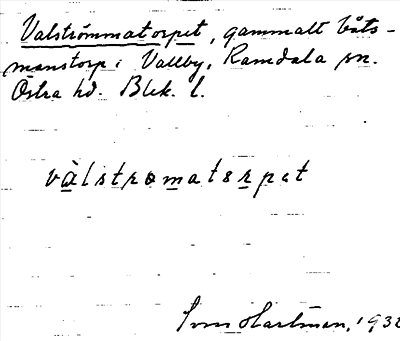 Valströmmatorpet, gammalt båts-
manstorp i Vallby, Ramdala sn.
Östra hd. Blek. l.
vàlstromatsrpet
Hartman, 1932